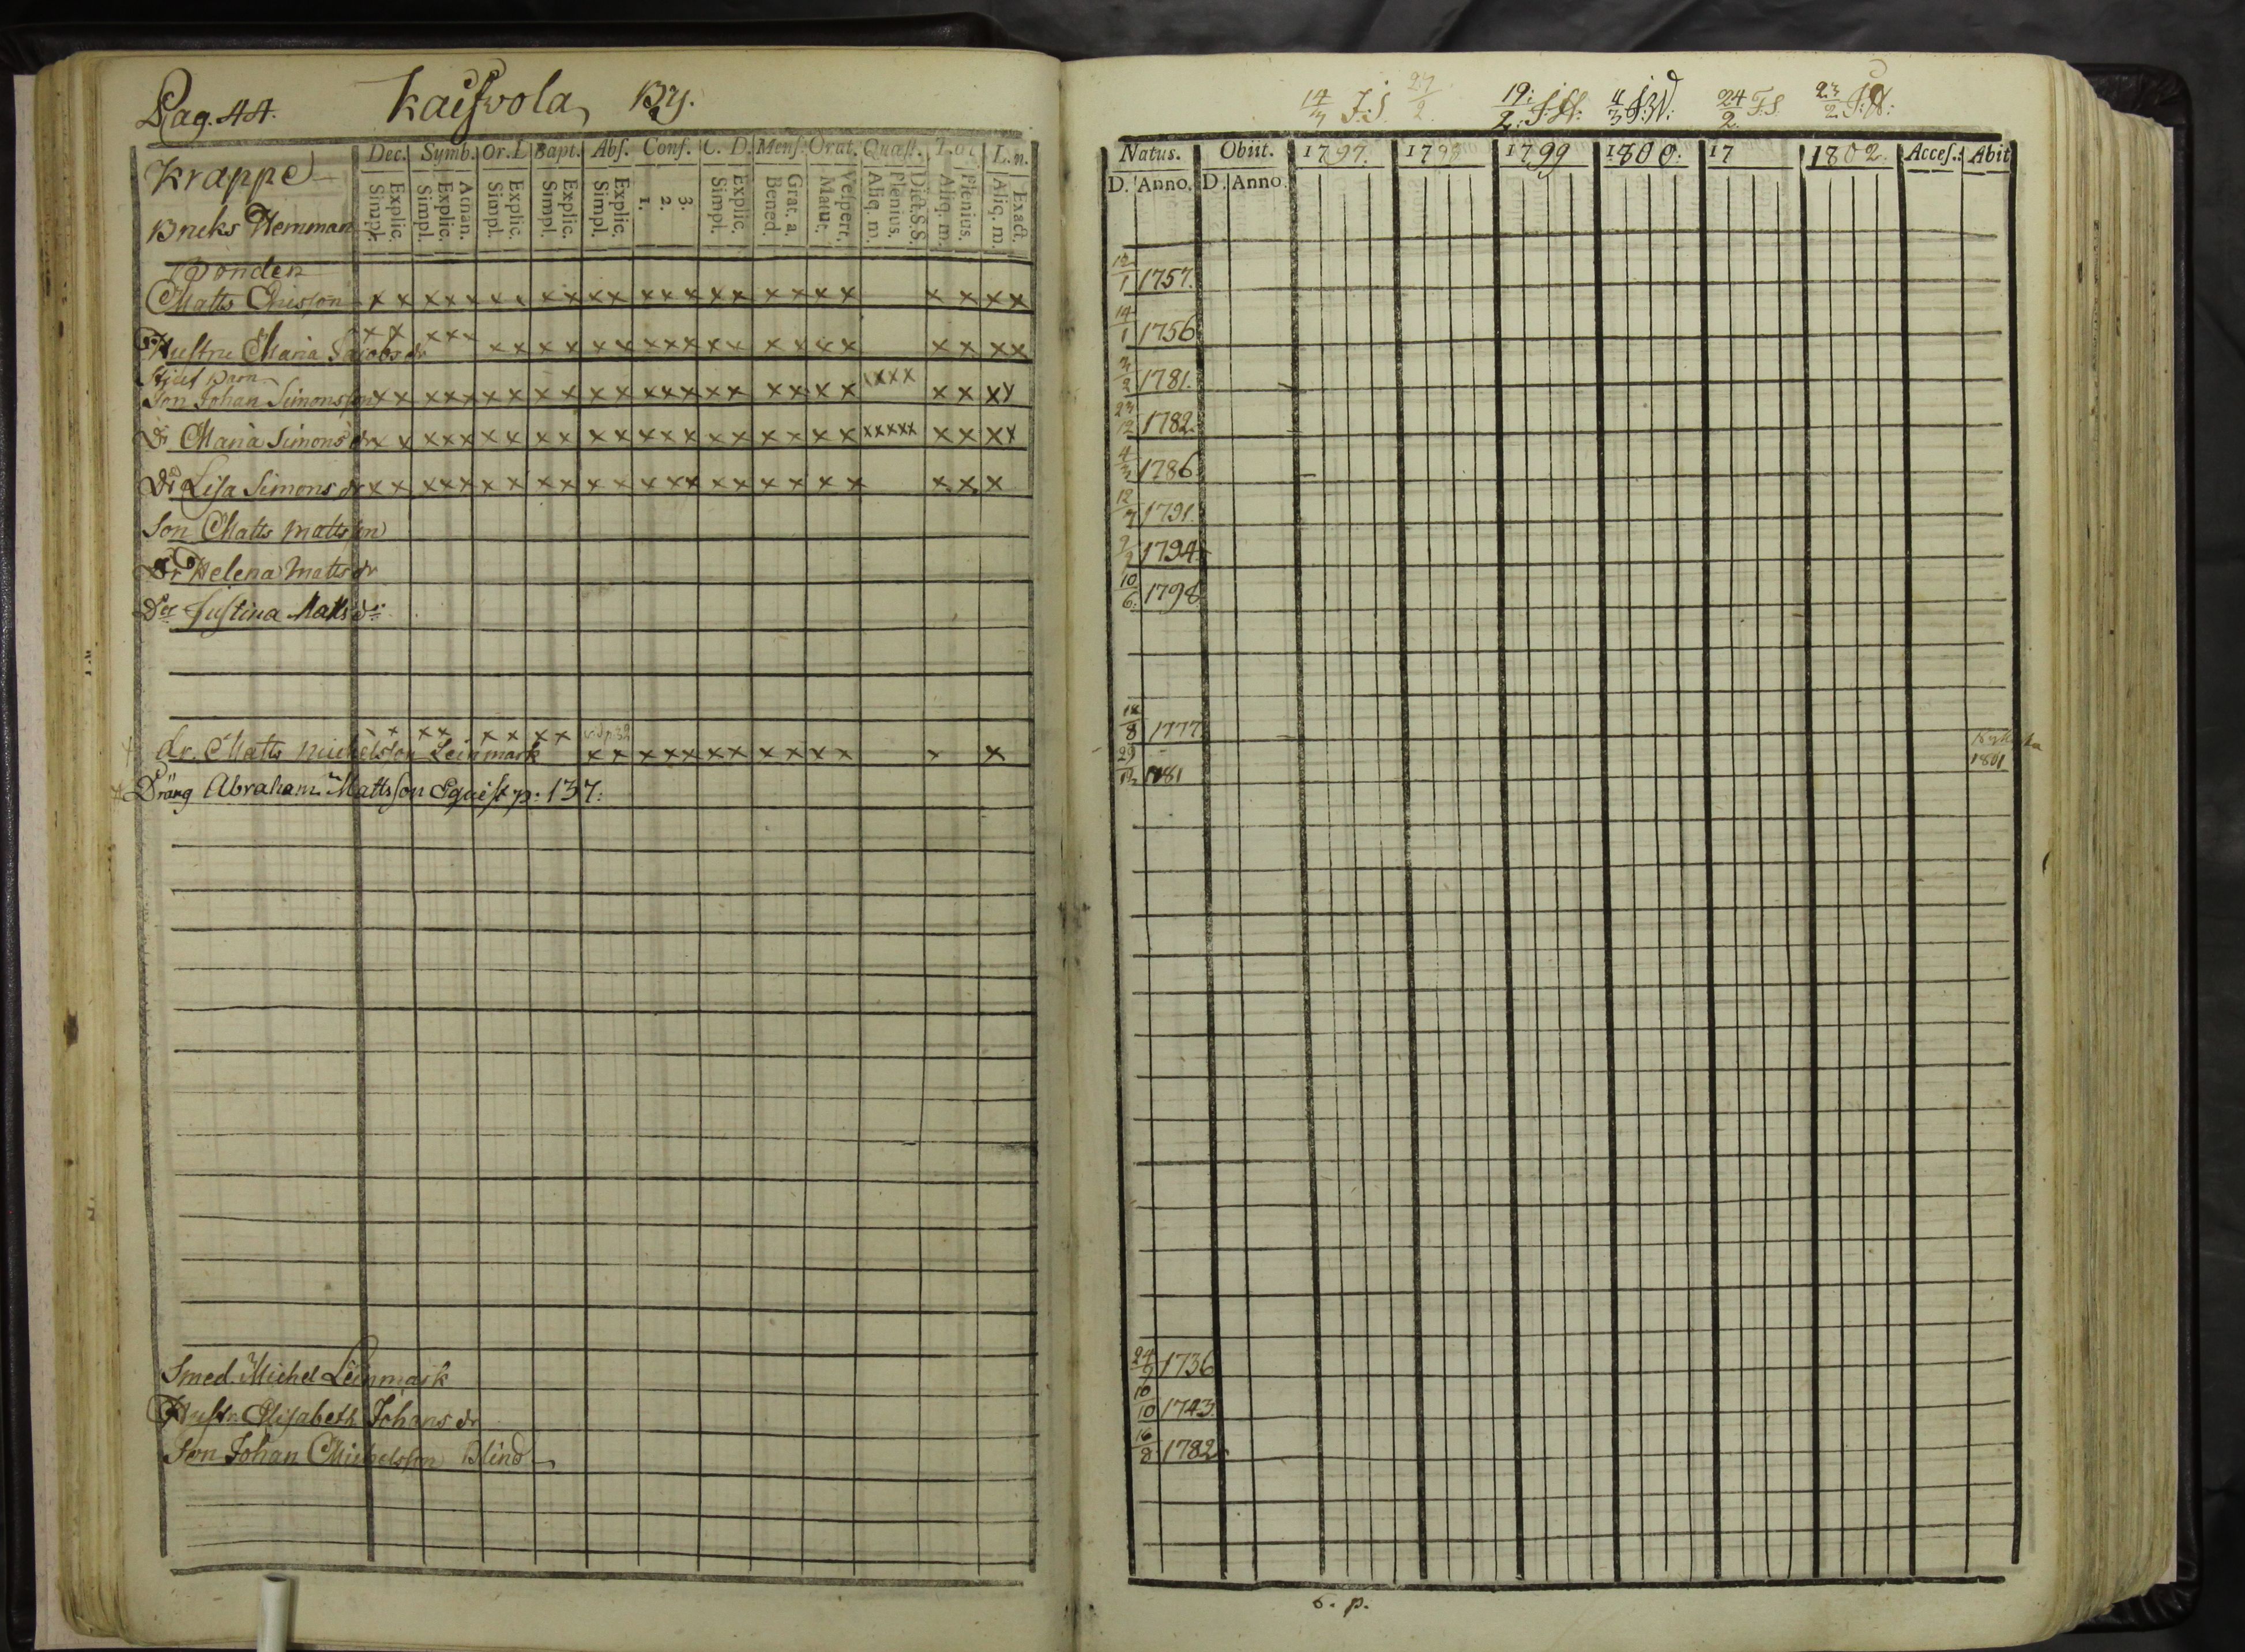 Pag. 44. Kaiswola By.
Krappe
Bruks Hemman
Dec. Symb. Or. D. Bapt. Abs. Conf. C. D. Mens. Orat. Quæst. L. n.
Simpl. Explic. Simpl. Explic. Athan. Simpl. Explic. Simpl. Explic. Simpl. Explic. 1. 2. 3. Simpl. Explic. Bened. Grat. a. Matut. Vespert. Aliq. m. Plenius. Dict. S. S. Aliq. m. Plenius. Aliq. m. Exact.
Bonden
Matts Ericsson x x x x x x x x x x x x x x x x x x x x x x x
Hustru Maria Jacobs dr x x x x x x x x x x x x x x x x x x x x x x x
Stjuf Barn
Son Johan Simonsson x x x x x x x x x x x x x x x x x x x x x x x x x x x
Dr Maria Simons dr x x x x x x x x x x x x x x x x x x x x x x x x x x x x
Dr Lisa Simons dr x x x x x x x x x x x x x x x x x x x x x x
Son Matts Mattsson
Dr Helena Matts dr
Dr Justina Mats dr
dr. Matts Michelsson Leinmark x x x x x x x x x x x x x x x x x x x x
Dräng Abraham Mattsson Eqvist p: 137:
Smed Michel Leinmark
Hustr. Elisabeth Johans dr
Son Johan Michelsson Blind
14/3 J.S. 27/2 19/2 4/3 24/2 F.S. 23/2
Natus. Obiit. 1797. 1798 1799 1800. 17 1802. Acces. Abit
D. Anno. D. Anno.
12/1 1757.
14/1 1756
3/2 1781.
23/12 1782.
4/3 1786
12/7 1791.
1794
10/6 1798
18/8 1777
29/12 1781 1801
24/9 1736
10/10 1743.
16/8 1782
6. p.